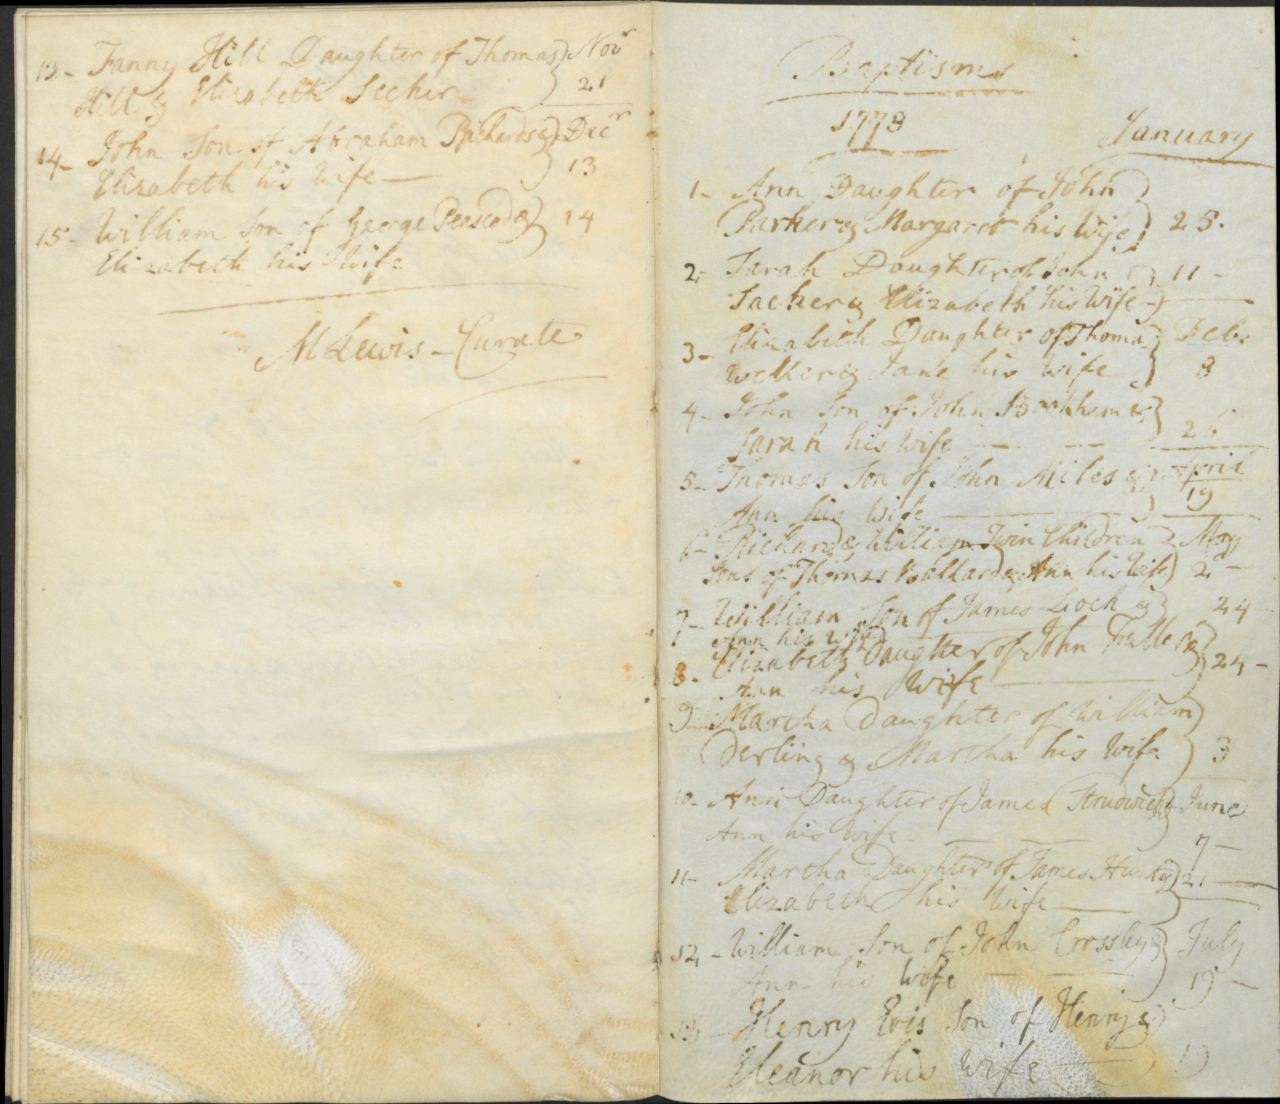 13- Fanny Hill Daughter of Thomas } Novr
Hill & Elizabeth Secker } 21
14- John Son of Abraham Richards & } Decr
Elizabeth his Wife — } 13
15- William Son of George Pescod & } 14
Elizabeth his Wife
M Lewis - Curate
Baptisms
1778 January
1- Ann Daughter of John }
Parker & Margaret his Wife } 25.
2- Sarah Daughter of John } 11 -
Sacker & Elizabeth his Wife - }
3- Elizabeth Daughter of Thomas } Feb:
Welker & Jane his Wife } 8
4- John Son of John Bookham & }
Sarah his Wife — — 26
5- Thomas Son of John Miles & } April
Ann his Wife — } 19
6- Richard & William Twin Children } May
Sons of Thomas Ballard & Ann his Wife } 2 -
7- William Son of James Lock & } 24
Ann his Wife
8- Elizabeth Daughter of John Fuller & } 24 -
Ann his Wife —
9- Martha Daughter of William }
Derling & Martha his Wife } 3
10- Ann Daughter of James Strudwick & } June
Ann his Wife - — — 7 -
11- Martha Daughter of James Hunt & } 21 —
Elizabeth his Wife — }
12- William Son of John Crossby & } July
Ann his Wife — — } 19 -
13- Henry Evis Son of Henry & }
Eleanor his Wife — } 19